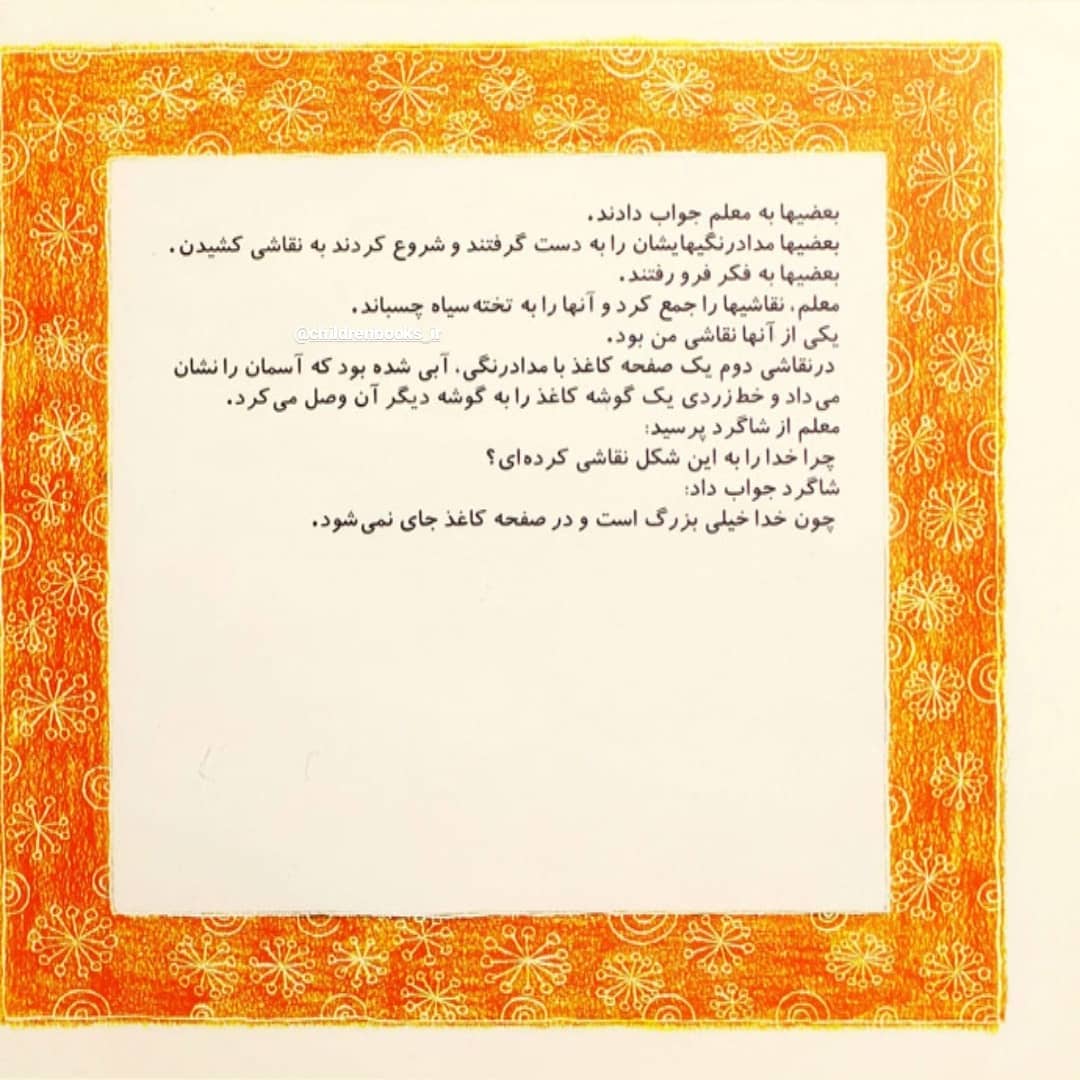 بعضیها به معلم جواب دادند.
بعضیها مدادرنگیهایشان را به دست گرفتند و شروع کردند به نقاشی کشیدن.
بعضیها به فکر فرو رفتند.
معلم، نقاشیها را جمع کرد و آنها را به تخته‌سیاه چسباند.
@childrenbooks_ir
یکی از آنها نقاشی من بود.
درنقاشی دوم یک صفحه کاغذ با مدادرنگی، آبی شده بود که آسمان را نشان
می‌داد و خط زردی یک گوشه کاغذ را به گوشه دیگر آن وصل می‌کرد.
معلم از شاگرد پرسید:
چرا خدا را به این شکل نقاشی کرده‌ای؟
شاگرد جواب داد:
چون خدا خیلی بزرگ است و در صفحه کاغذ جای نمی‌شود.